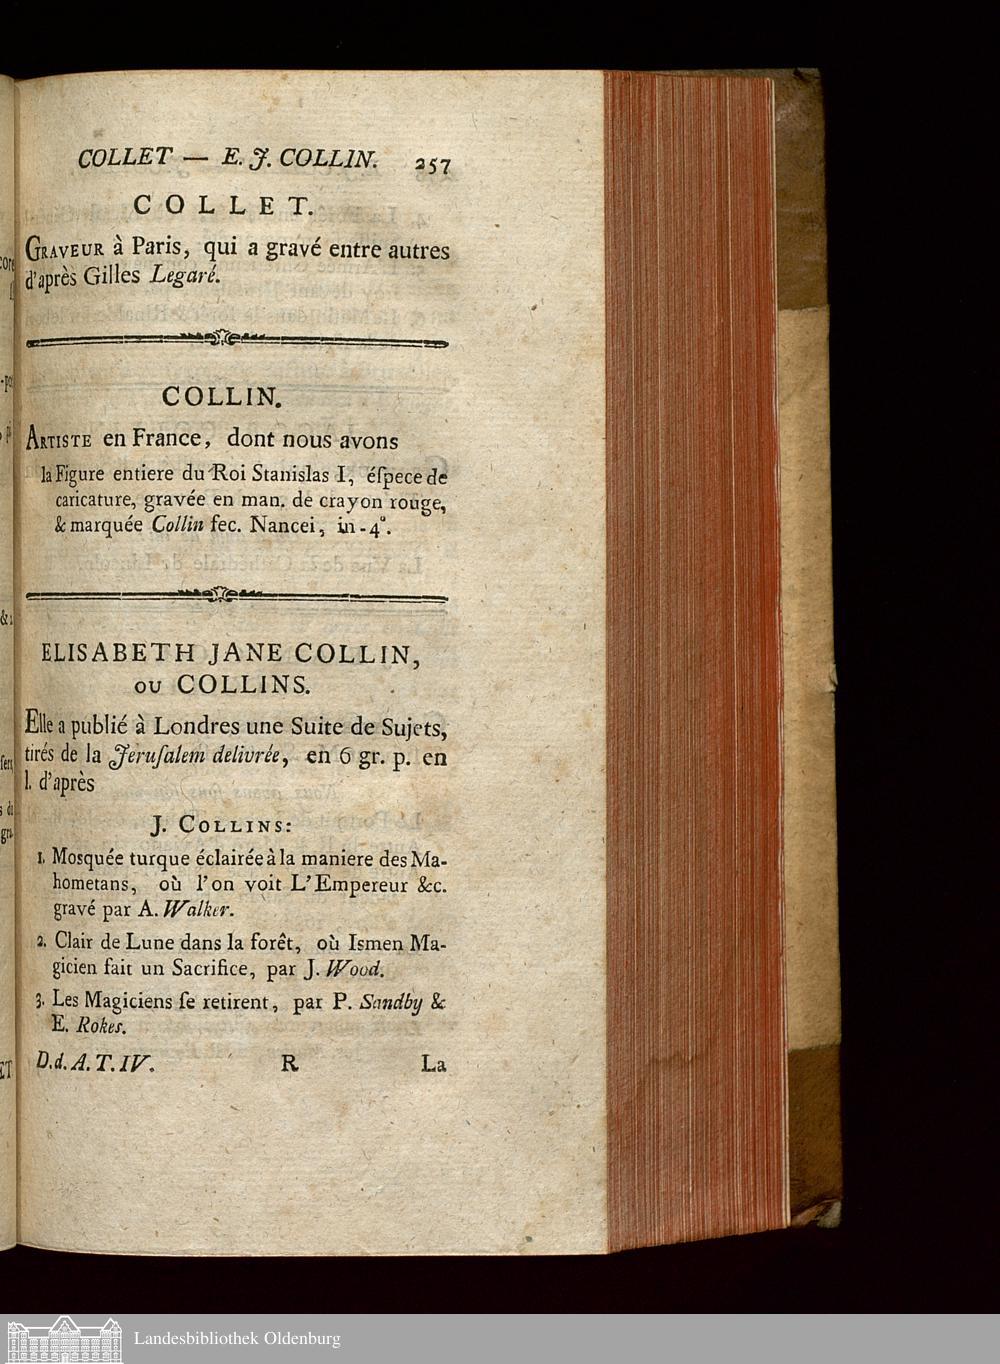 COLLET — E. J. COLLIN. 257
COLLET.
GRAVEUR à Paris, qui a gravé entre autres
d'après Gilles Legaré.
COLLIN.
ARTISTE en France, dont nous avons
la Figure entiere du Roi Stanislas I, éſpece de
caricature, gravée en man. de crayon rouge,
& marquée Collin fec. Nancei, in-4º.
ELISABETH JANE COLLIN,
OU COLLINS.
Elle a publié à Londres une Suite de Sujets,
tirés de la Jeruſalem delivrée, en 6 gr. p. en
l. d'après
J. COLLINS:
1. Mosquée turque éclairée à la maniere des Ma-
hometans, où l'on voit L'Empereur &c.
gravé par A. Walker.
2. Clair de Lune dans la forêt, où Ismen Ma-
gicien fait un Sacrifice, par J. Wood.
3. Les Magiciens ſe retirent, par P. Sandby &
E. Rokes.
D.d. A. T. IV. R La
Landesbibliothek Oldenburg